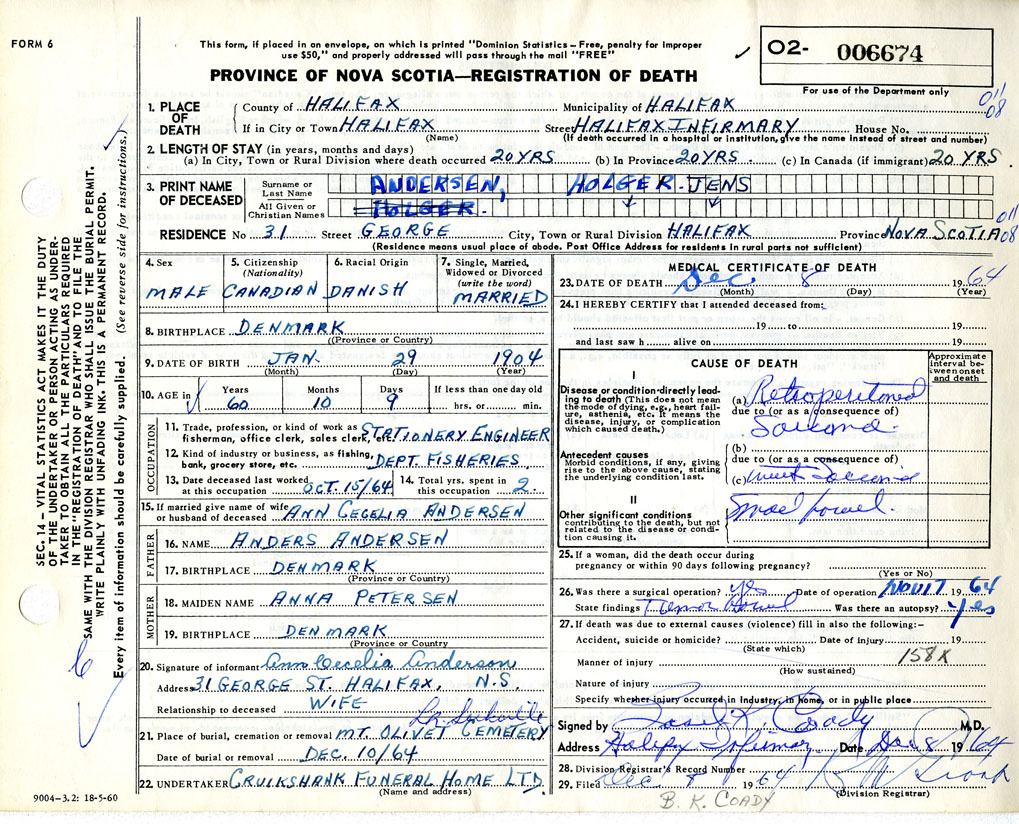 FORM 6
This form, if placed in an envelope, on which is printed "Dominion Statistics – Free, penalty for improper
use $50," and properly addressed will pass through the mail "FREE"
PROVINCE OF NOVA SCOTIA—REGISTRATION OF DEATH
✓ 02- 006674
For use of the Department only
011
08
SEC. 14 – VITAL STATISTICS ACT MAKES IT THE DUTY
OF THE UNDERTAKER OR PERSON ACTING AS UNDER-
TAKER TO OBTAIN ALL THE PARTICULARS REQUIRED
IN THE "REGISTRATION OF DEATH" AND TO FILE THE
SAME WITH THE DIVISION REGISTRAR WHO SHALL ISSUE THE BURIAL PERMIT.
WRITE PLAINLY WITH UNFADING INK. THIS IS A PERMANENT RECORD.
Every item of information should be carefully supplied. (See reverse side for instructions.)
1. PLACE OF DEATH County of HALIFAX Municipality of HALIFAX
If in City or Town HALIFAX (Name) Street HALIFAX INFIRMARY House No.
(If death occurred in a hospital or institution, give the name instead of street and number)
2. LENGTH OF STAY (in years, months and days)
(a) In City, Town or Rural Division where death occurred 20 YRS (b) In Province 20 YRS. (c) In Canada (if immigrant) 20 YRS.
3. PRINT NAME OF DECEASED Surname or Last Name ANDERSEN, HOLGER JENS
All Given or Christian Names HOLGER.
011
08
RESIDENCE No 31 Street GEORGE City, Town or Rural Division HALIFAX Province NOVA SCOTIA
(Residence means usual place of abode. Post Office Address for residents in rural parts not sufficient)
4. Sex MALE
5. Citizenship (Nationality) CANADIAN
6. Racial Origin DANISH
7. Single, Married, Widowed or Divorced (write the word) MARRIED
8. BIRTHPLACE DENMARK
(Province or Country)
9. DATE OF BIRTH JAN. 29 1904
(Month) (Day) (Year)
10. AGE in Years 60 Months 10 Days 9 If less than one day old hrs. or min.
OCCUPATION
11. Trade, profession, or kind of work as fisherman, office clerk, sales clerk, etc. STATIONERY ENGINEER
12. Kind of industry or business, as fishing, bank, grocery store, etc. DEPT. FISHERIES
13. Date deceased last worked at this occupation OCT. 15/64 14. Total yrs. spent in this occupation 2
15. If married give name of wife or husband of deceased ANN CECELIA ANDERSEN
FATHER
16. NAME ANDERS ANDERSEN
17. BIRTHPLACE DENMARK
(Province or Country)
MOTHER
18. MAIDEN NAME ANNA PETERSEN
19. BIRTHPLACE DENMARK
(Province or Country)
20. Signature of informant Ann Cecelia Anderson
Address 31 GEORGE ST. HALIFAX, N.S.
Relationship to deceased WIFE
21. Place of burial, cremation or removal MT. OLIVET CEMETERY
Date of burial or removal DEC. 10/64
22. UNDERTAKER CRUIKSHANK FUNERAL HOME LTD.
(Name and address)
9004-3.2: 18-5-60
MEDICAL CERTIFICATE OF DEATH
23. DATE OF DEATH Dec 8 1964
(Month) (Day) (Year)
24. I HEREBY CERTIFY that I attended deceased from:
19 to 19
and last saw h alive on 19
CAUSE OF DEATH
Approximate interval between onset and death
I
Disease or condition directly leading to death (This does not mean the mode of dying, e.g., heart failure, asthenia, etc. It means the disease, injury, or complication which caused death.)
(a) Retroperitoneal
due to (or as a consequence of)
Antecedent causes
Morbid conditions, if any, giving rise to the above cause, stating the underlying condition last.
(b)
due to (or as a consequence of)
(c)
II
Other significant conditions
contributing to the death, but not related to the disease or condition causing it.
Small bowel.
25. If a woman, did the death occur during
pregnancy or within 90 days following pregnancy?
(Yes or No)
26. Was there a surgical operation? yes Date of operation Nov 17 1964
State findings Tumor Bowel Was there an autopsy? Yes
27. If death was due to external causes (violence) fill in also the following:–
Accident, suicide or homicide? Date of injury 19
(State which)
158X
Manner of injury
(How sustained)
Nature of injury
Specify whether injury occurred in industry, in home, or in public place
Signed by Basil K. Coady M.D.
Address Halifax Infirmary Date Dec 8 1964
28. Division Registrar's Record Number
29. Filed Dec 1964
(Division Registrar)
B. K. COADY